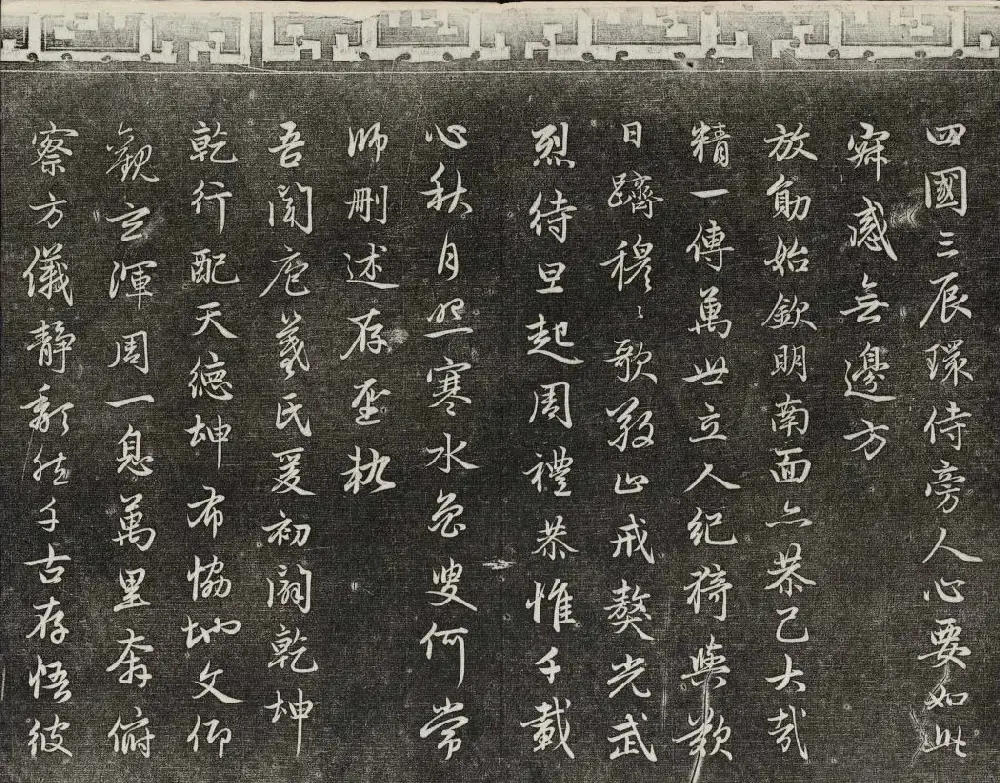 四國三辰環侍旁人心要如此
寂感無邊方
放勛始欽明南面亦恭己大哉
精一傳萬世立人紀猗與歎
日躋穆〻歌敬止戒獒光武
烈待旦起周禮恭惟千載
心秋月照寒水魯叟何常
師刪述存聖軌
吾聞庖羲氏爰初闢乾坤
乾行配天德坤布協地文仰
觀玄渾周一息萬里奔俯
察方儀靜頹然千古存悟彼